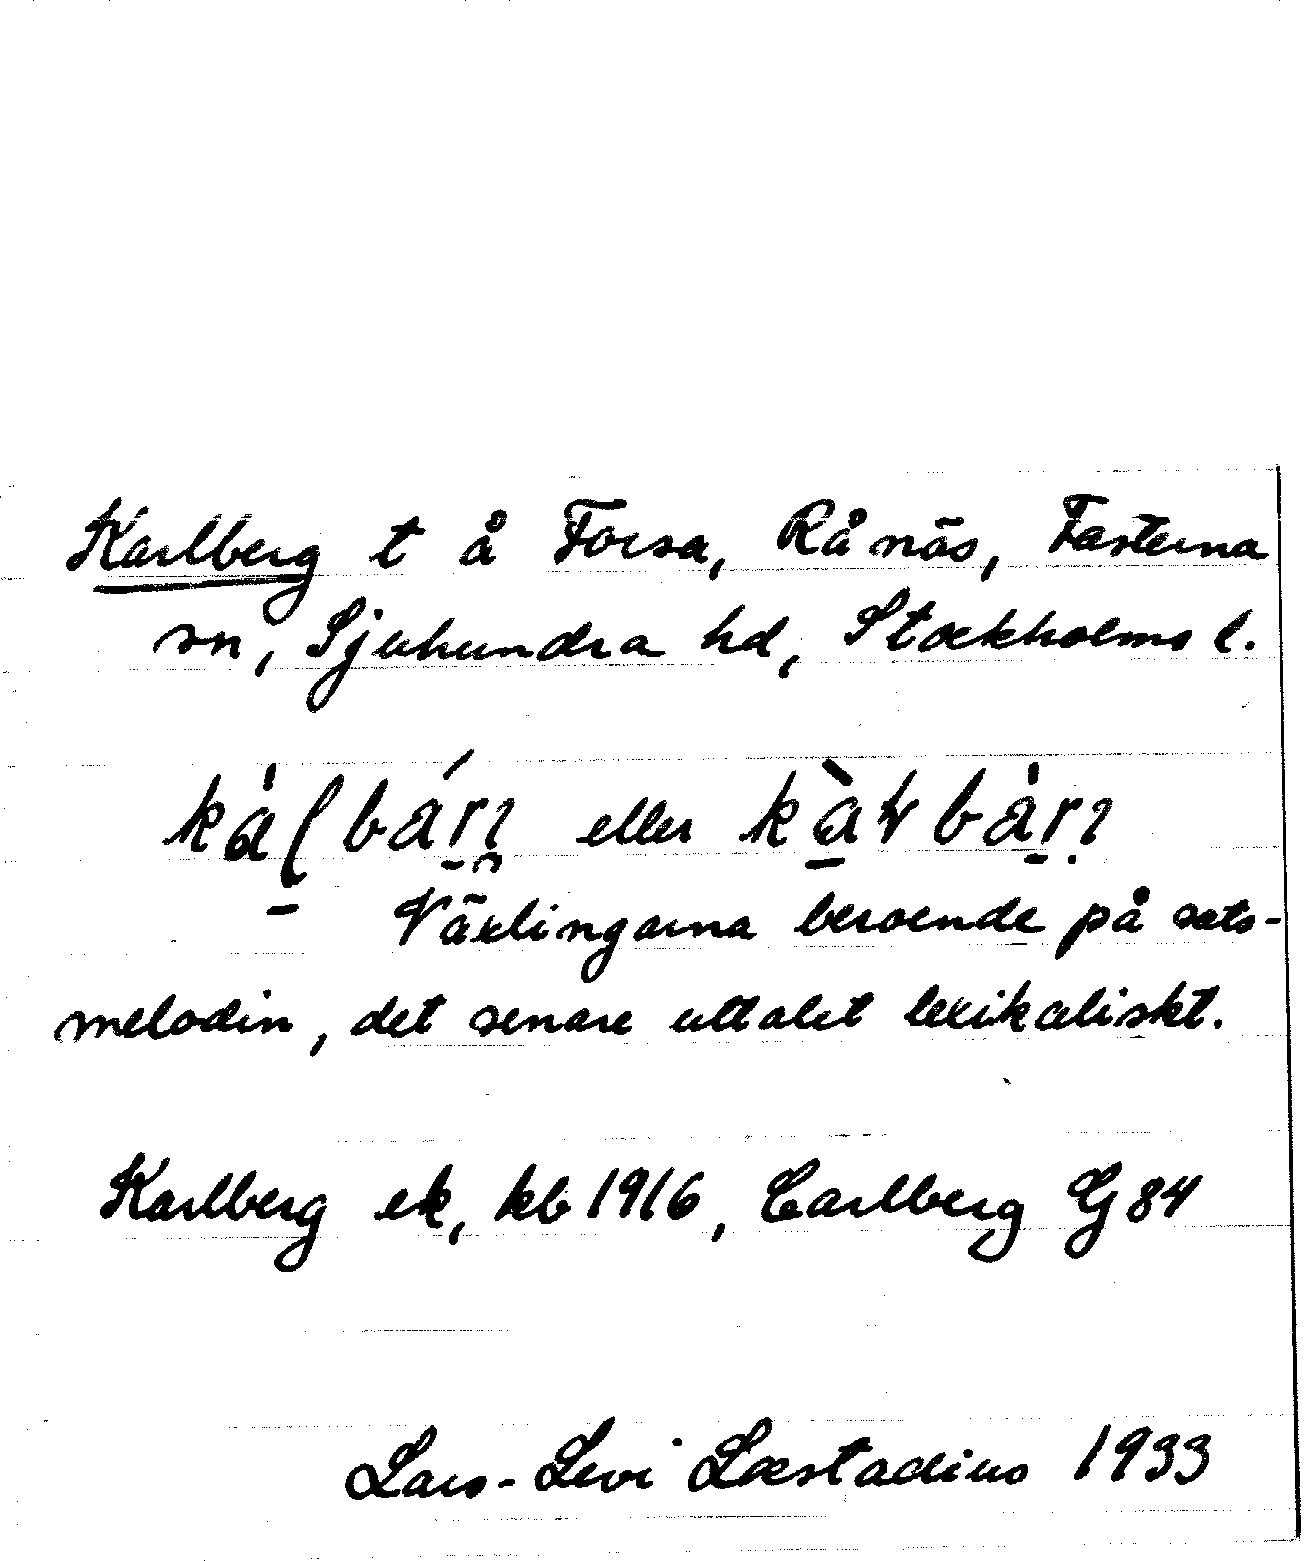 Karlberg t å Forsa, Rånäs, Fasterna
sn, Sjuhundra hd, Stockholms l.
eller
Växlingarna beroende på sats-
melodin, det senare uttalet lexikaliskt.
Karlberg ek, kb 1916, Carlberg G 84
Lars-Levi Læstadius 1933